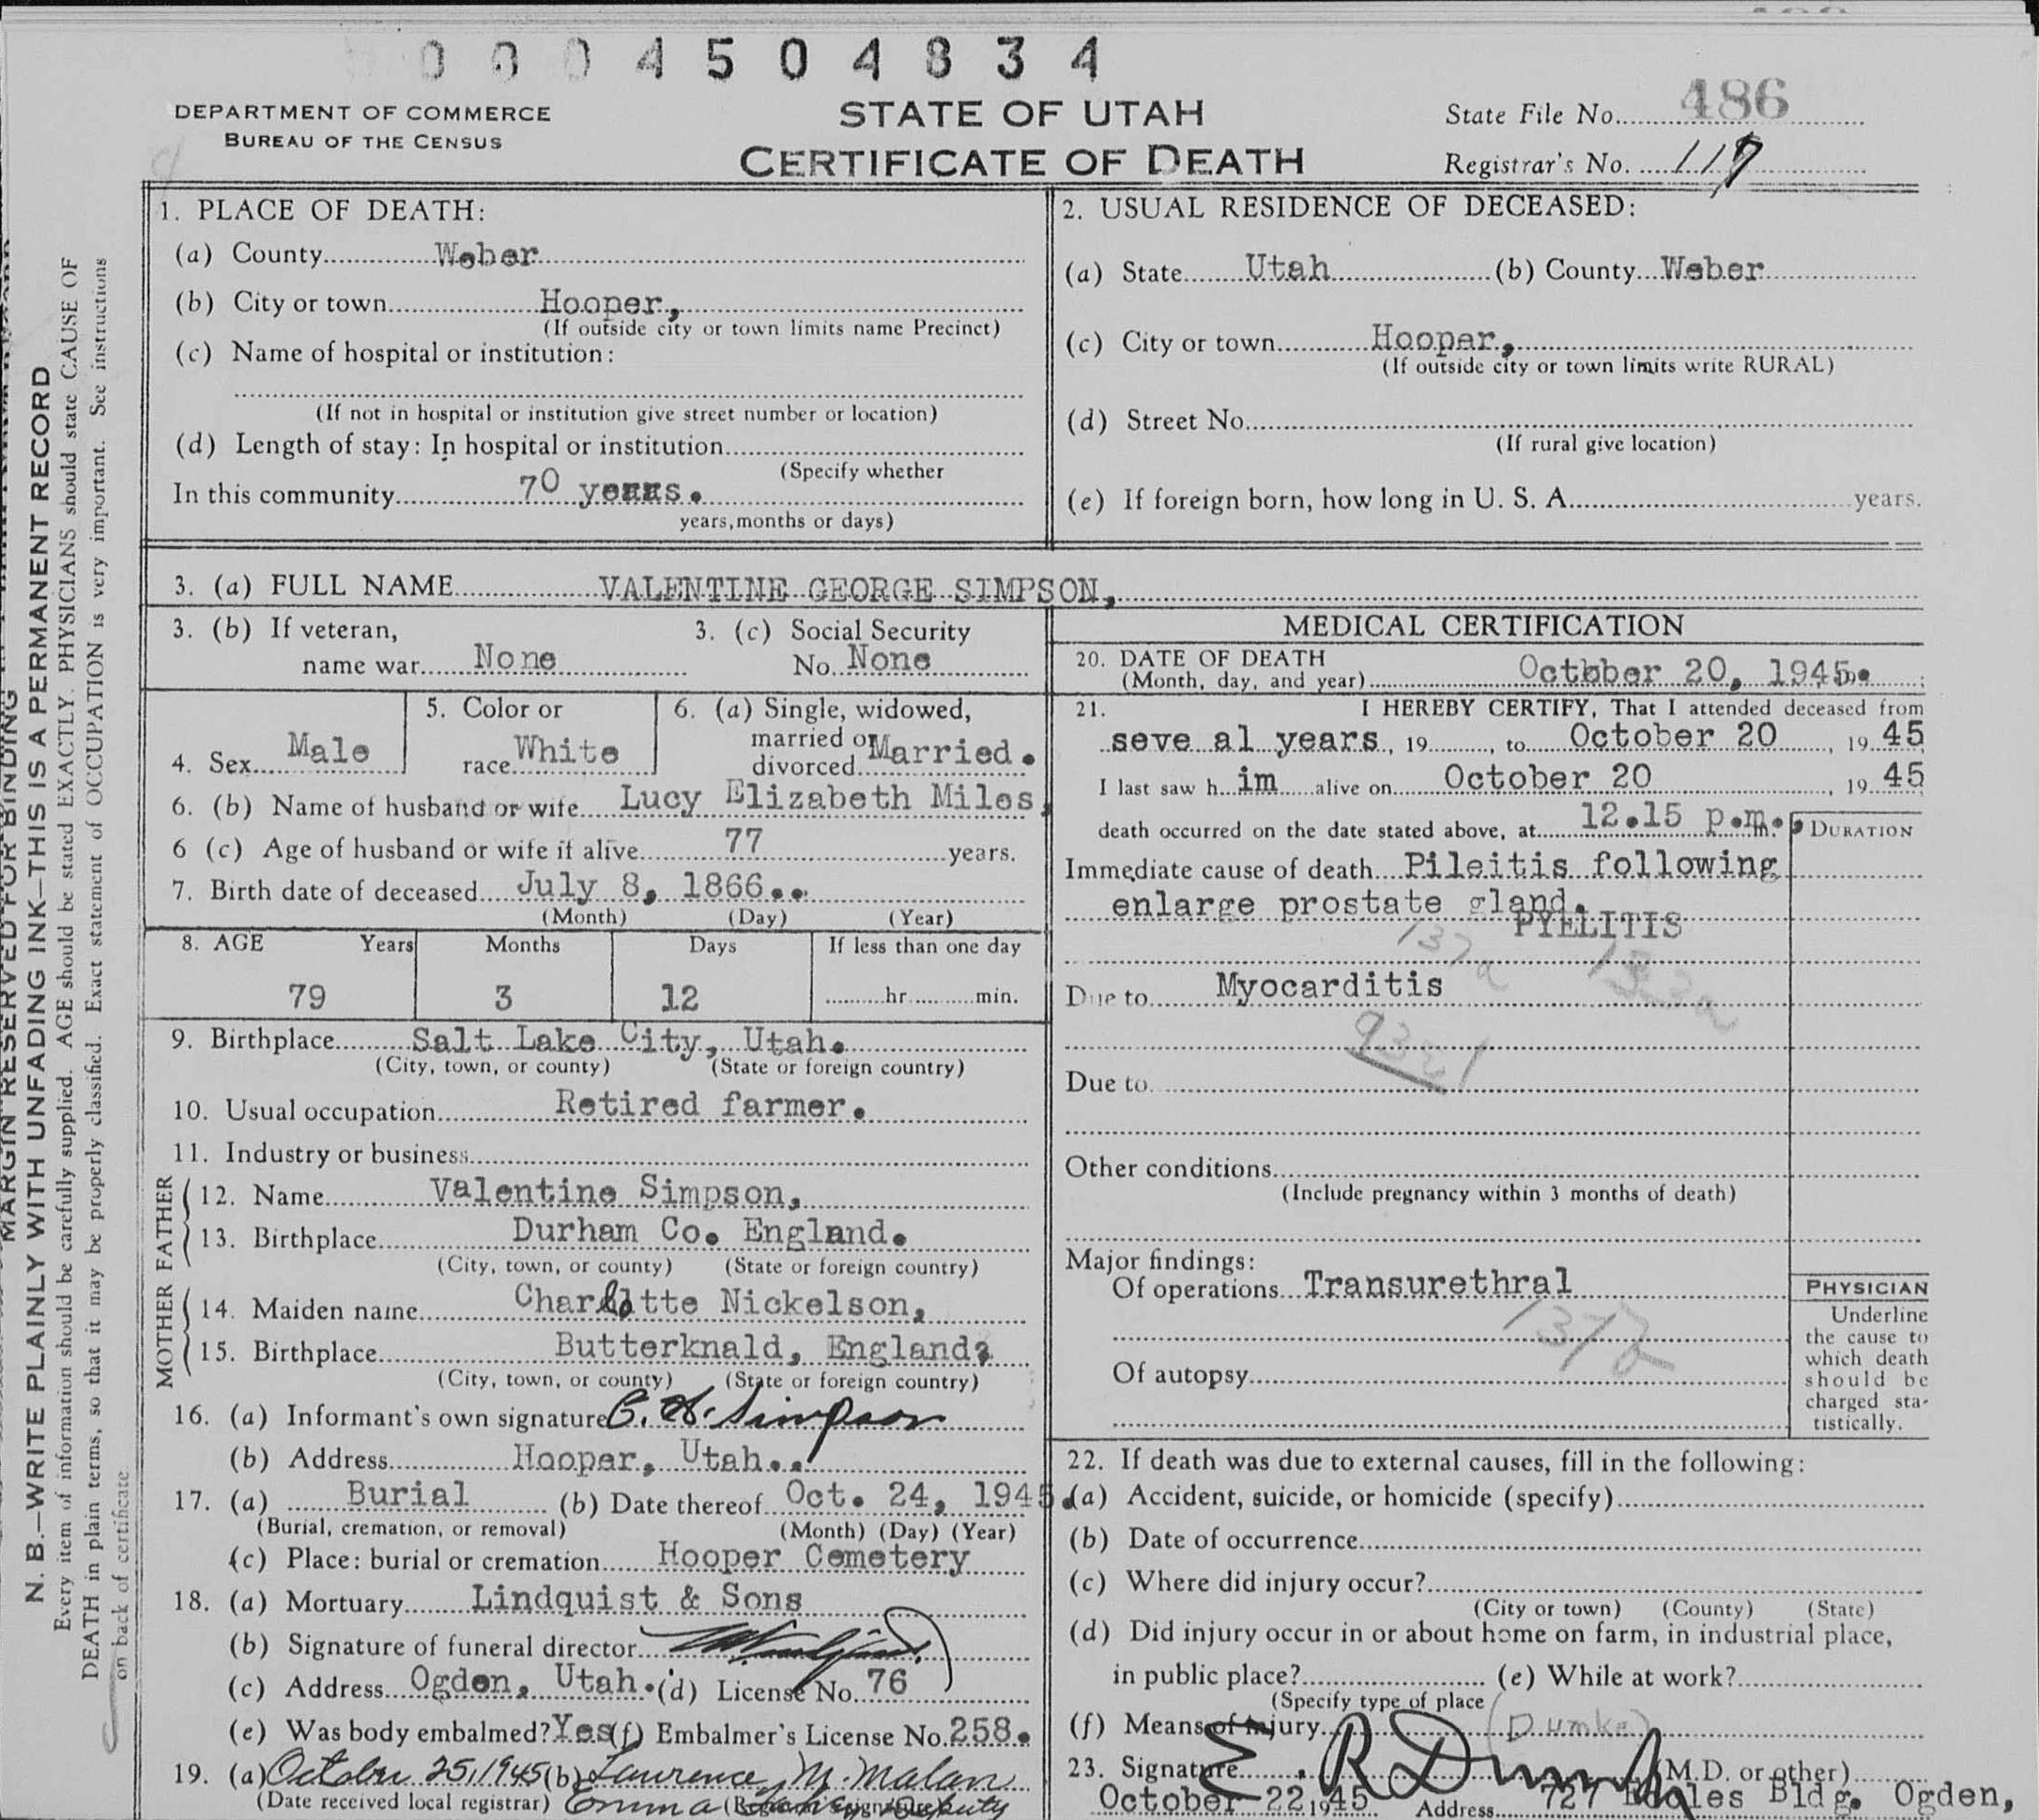 0 0 0 4 5 0 4 8 3 4
DEPARTMENT OF COMMERCE
BUREAU OF THE CENSUS
STATE OF UTAH
CERTIFICATE OF DEATH
State File No. 486
Registrar's No. 117
MARGIN RESERVED FOR BINDING
N. B.—WRITE PLAINLY WITH UNFADING INK—THIS IS A PERMANENT RECORD
Every item of information should be carefully supplied. AGE should be stated EXACTLY. PHYSICIANS should state CAUSE OF
DEATH in plain terms, so that it may be properly classified. Exact statement of OCCUPATION is very important. See instructions
on back of certificate
1. PLACE OF DEATH:
(a) County Weber
(b) City or town Hooper,
(If outside city or town limits name Precinct)
(c) Name of hospital or institution:
(If not in hospital or institution give street number or location)
(d) Length of stay: In hospital or institution
(Specify whether
In this community 70 years.
years, months or days)
2. USUAL RESIDENCE OF DECEASED:
(a) State Utah (b) County Weber
(c) City or town Hooper,
(If outside city or town limits write RURAL)
(d) Street No.
(If rural give location)
(e) If foreign born, how long in U. S. A. years.
3. (a) FULL NAME VALENTINE GEORGE SIMPSON,
3. (b) If veteran,
name war None
3. (c) Social Security
No. None
4. Sex Male
5. Color or
race White
6. (a) Single, widowed,
married or
divorced Married.
6. (b) Name of husband or wife Lucy Elizabeth Miles,
6 (c) Age of husband or wife if alive 77 years.
7. Birth date of deceased July 8, 1866..
(Month) (Day) (Year)
8. AGE Years Months Days If less than one day
79 3 12 hr. min.
9. Birthplace Salt Lake City, Utah.
(City, town, or county) (State or foreign country)
10. Usual occupation Retired farmer.
11. Industry or business
FATHER
12. Name Valentine Simpson,
13. Birthplace Durham Co. England.
(City, town, or county) (State or foreign country)
MOTHER
14. Maiden name Charlotte Nickelson,
15. Birthplace Butterknald, England.
(City, town, or county) (State or foreign country)
16. (a) Informant's own signature C. H. Simpson
(b) Address Hooper, Utah..
17. (a) Burial (b) Date thereof Oct. 24, 1945.
(Burial, cremation, or removal) (Month) (Day) (Year)
(c) Place: burial or cremation Hooper Cemetery
18. (a) Mortuary Lindquist & Sons
(b) Signature of funeral director
(c) Address Ogden, Utah. (d) License No. 76
(e) Was body embalmed? Yes (f) Embalmer's License No. 258.
19. (a) October 25, 1945 (b) Lawrence M. Malan
(Date received local registrar) Emma Deputy
MEDICAL CERTIFICATION
20. DATE OF DEATH
(Month, day, and year) October 20, 1945.
21. I HEREBY CERTIFY, That I attended deceased from
seve al years, 19 , to October 20, 19 45
I last saw h im alive on October 20, 19 45
death occurred on the date stated above, at 12.15 p.m.,
DURATION
Immediate cause of death Pileitis following
enlarge prostate gland.
PYELITIS
137a
Due to Myocarditis
Due to
Other conditions
(Include pregnancy within 3 months of death)
Major findings:
Of operations Transurethral
Of autopsy
PHYSICIAN
Underline
the cause to
which death
should be
charged sta-
tistically.
22. If death was due to external causes, fill in the following:
(a) Accident, suicide, or homicide (specify)
(b) Date of occurrence
(c) Where did injury occur?
(City or town) (County) (State)
(d) Did injury occur in or about home on farm, in industrial place,
in public place? (e) While at work?
(Specify type of place
(f) Means of injury (Dumke)
23. Signature E. R. Dumke (M.D. or other)
October 22, 1945 Address 727 Eccles Bldg. Ogden,